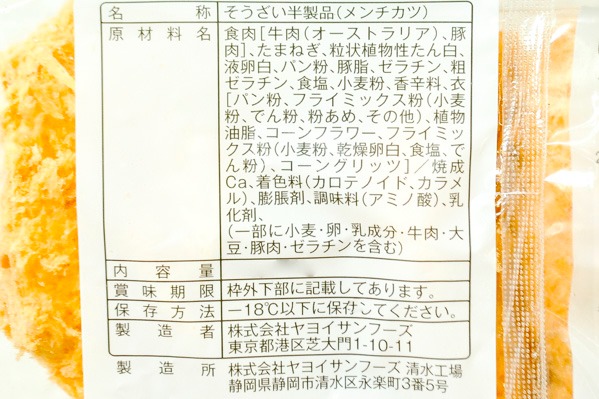 名称 そうざい半製品(メンチカツ)
原材料名 食肉[牛肉(オーストラリア)、豚
肉]、たまねぎ、粒状植物性たん白、
液卵白、パン粉、豚脂、ゼラチン、粗
ゼラチン、食塩、小麦粉、香辛料、衣
[パン粉、フライミックス粉(小麦
粉、でん粉、粉あめ、その他)、植物
油脂、コーンフラワー、フライミッ
クス粉(小麦粉、乾燥卵白、食塩、で
ん粉)、コーングリッツ]/焼成
Ca、着色料(カロテノイド、カラメ
ル)、膨脹剤、調味料(アミノ酸)、乳
化剤、
(一部に小麦・卵・乳成分・牛肉・大
豆・豚肉・ゼラチンを含む)
内容量
賞味期限 枠外下部に記載してあります。
保存方法 −18℃以下に保存してください。
製造者 株式会社ヤヨイサンフーズ
東京都港区芝大門1-10-11
製造所 株式会社ヤヨイサンフーズ 清水工場
静岡県静岡市清水区永楽町3番5号